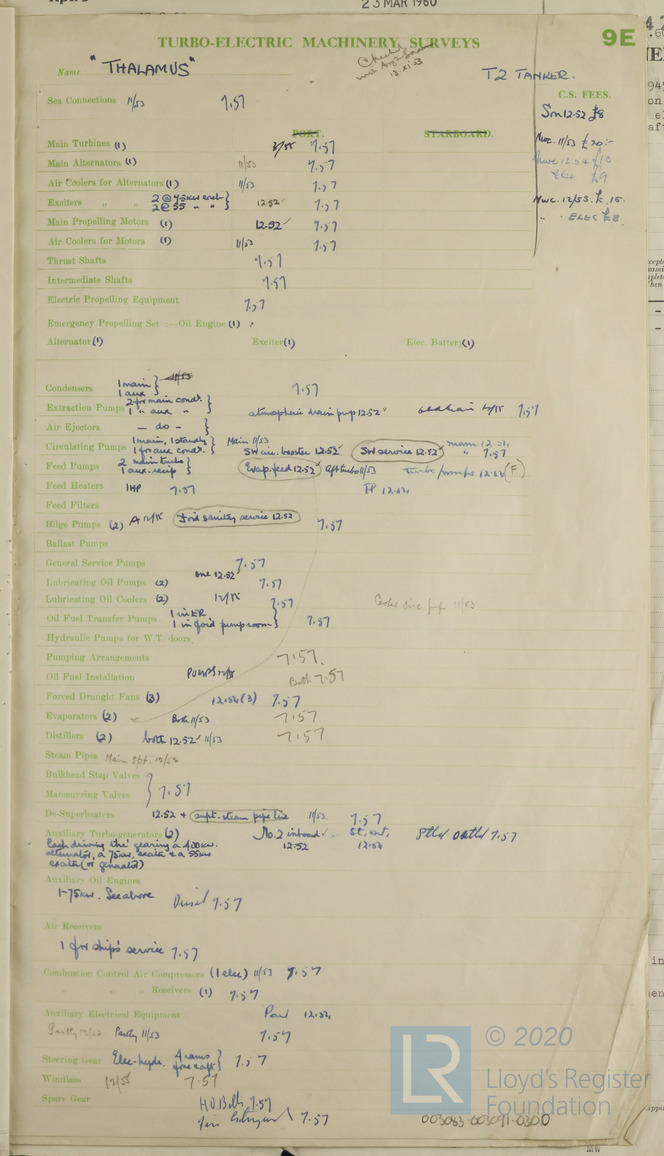 23 MAR 1960
9E
TURBO-ELECTRIC MACHINERY SURVEYS
Name "THALAMUS" T2 TANKER.
12.XI.53
C.S. FEES.
Sea Connections 11/53 7.57
12.52 £8
PORT. STARBOARD.
Nwc. 11/53 £20:-
Main Turbines (1) 7.57
Main Alternators (1) 11/53 7.57
Air Coolers for Alternators (1) 11/53 7.57
Elec £9
Exciters " " 2 @ 75kw each 12.52 7.57
2 @ 55 " "
Nwc. 12/55. £15.
" . ELEC £8.
Main Propelling Motors (1) 12.52 7.57
Air Coolers for Motors (1) 11/53 7.57
Thrust Shafts 7.57
Intermediate Shafts 7.57
Electric Propelling Equipment 7.57
Emergency Propelling Set :—Oil Engine (1)
Alternator (1) Exciter (1) Elec. Battery (1)
Condensers 1 main 11/53 7.57
1 aux
Extraction Pumps 2 for main condr. atmospheric drain pump 12.52 7.57
1 " aux "
Air Ejectors — do —
Circulating Pumps 1 main, 1 standby Main 11/53 SW service 12.52 main 12.54
1 for aux condr. SW circ. booster 12.52 " 7.57
Feed Pumps 2 main turbo Evap. feed 12.52 Aft turbo 11/53 turbo/pumps 12.54 (F)
1 aux. recip
Feed Heaters 1HP 7.57 12.54
Feed Filters
Bilge Pumps (2) Ford sanitary service 12.52 7.57
Ballast Pumps
General Service Pumps 7.57
Lubricating Oil Pumps (2) one 12.52 7.57
Lubricating Oil Coolers (2) 12/55 7.57
Cooler circ pump 11/53
Oil Fuel Transfer Pumps 1 in ER 7.57
1 in ford pumproom
Hydraulic Pumps for W.T. doors.
Pumping Arrangements 7.57.
Oil Fuel Installation Both 7.57
Forced Draught Fans (3) 12.54 (3) 7.57
Evaporators (2) Both 11/53 7.57
Distillers (2) both 12.52 11/53 7.57
Steam Pipes
Bulkhead Stop Valves
Manœuvring Valves 7.57
De-Superheaters 12.52 + supt. steam pipe line 11/53 7.57
Auxiliary Turbo-generators (2) No. 2 inboard 12.52 12.54 7.57
Each driving thro' gearing a 400kw.
alternator, a 75kw. exciter & a 55kw
exciter (or generator)
Auxiliary Oil Engines
1-75kw. See above Diesel 7.57
Air Receivers
1 for ship's service 7.57
Combustion Control Air Compressors (1 elec) 11/53 7.57
" " " Receivers (1) 7.57
Auxiliary Electrical Equipment Part 12.54
Partly 12/52 Partly 11/53 7.57
Steering Gear Elec-hydr. 4 rams 7.57
fore & aft
Windlass 12/55 7.57
Spare Gear 7.57
7.57
LR © 2020
Lloyd's Register
Foundation
003083-003091-0300